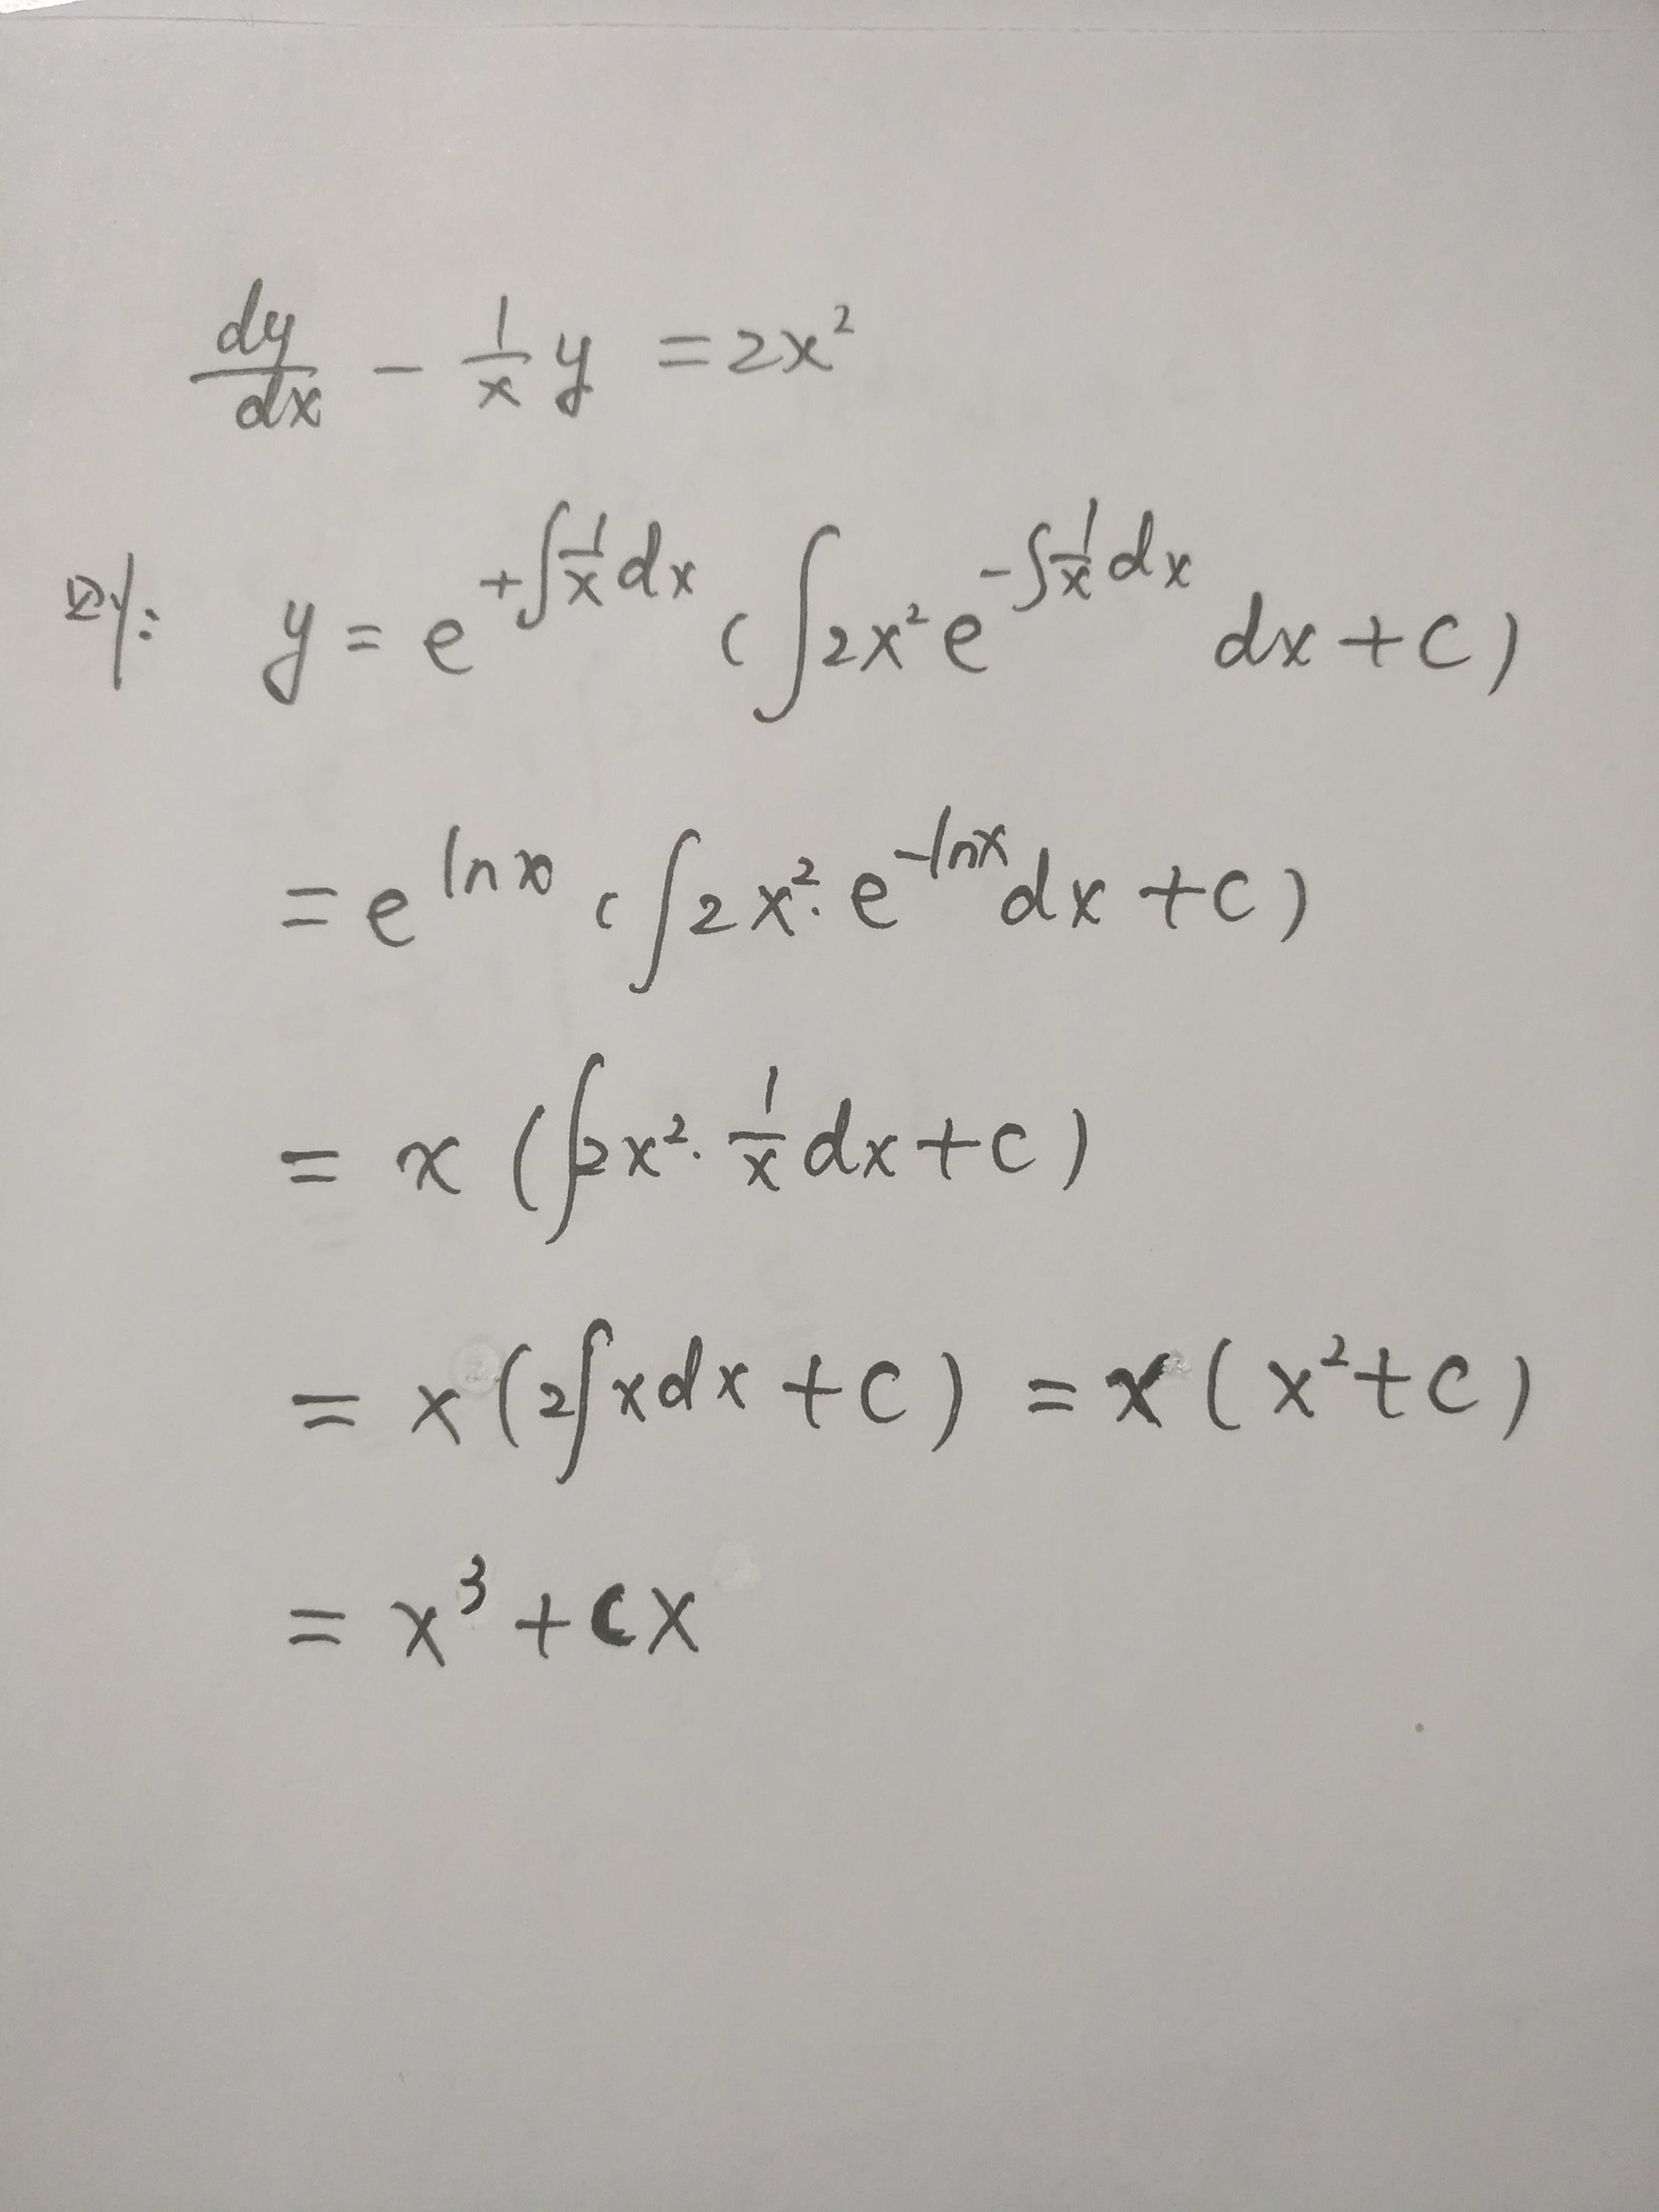 dy/dx - 1/x y = 2x²
则: y = e^(+∫1/x dx) (∫2x² e^(-∫1/x dx) dx + C)
= e^(ln x) (∫2x² · e^(-ln x) dx + C)
= x (∫2x² · 1/x dx + C)
= x (2∫x dx + C) = x (x² + C)
= x³ + Cx